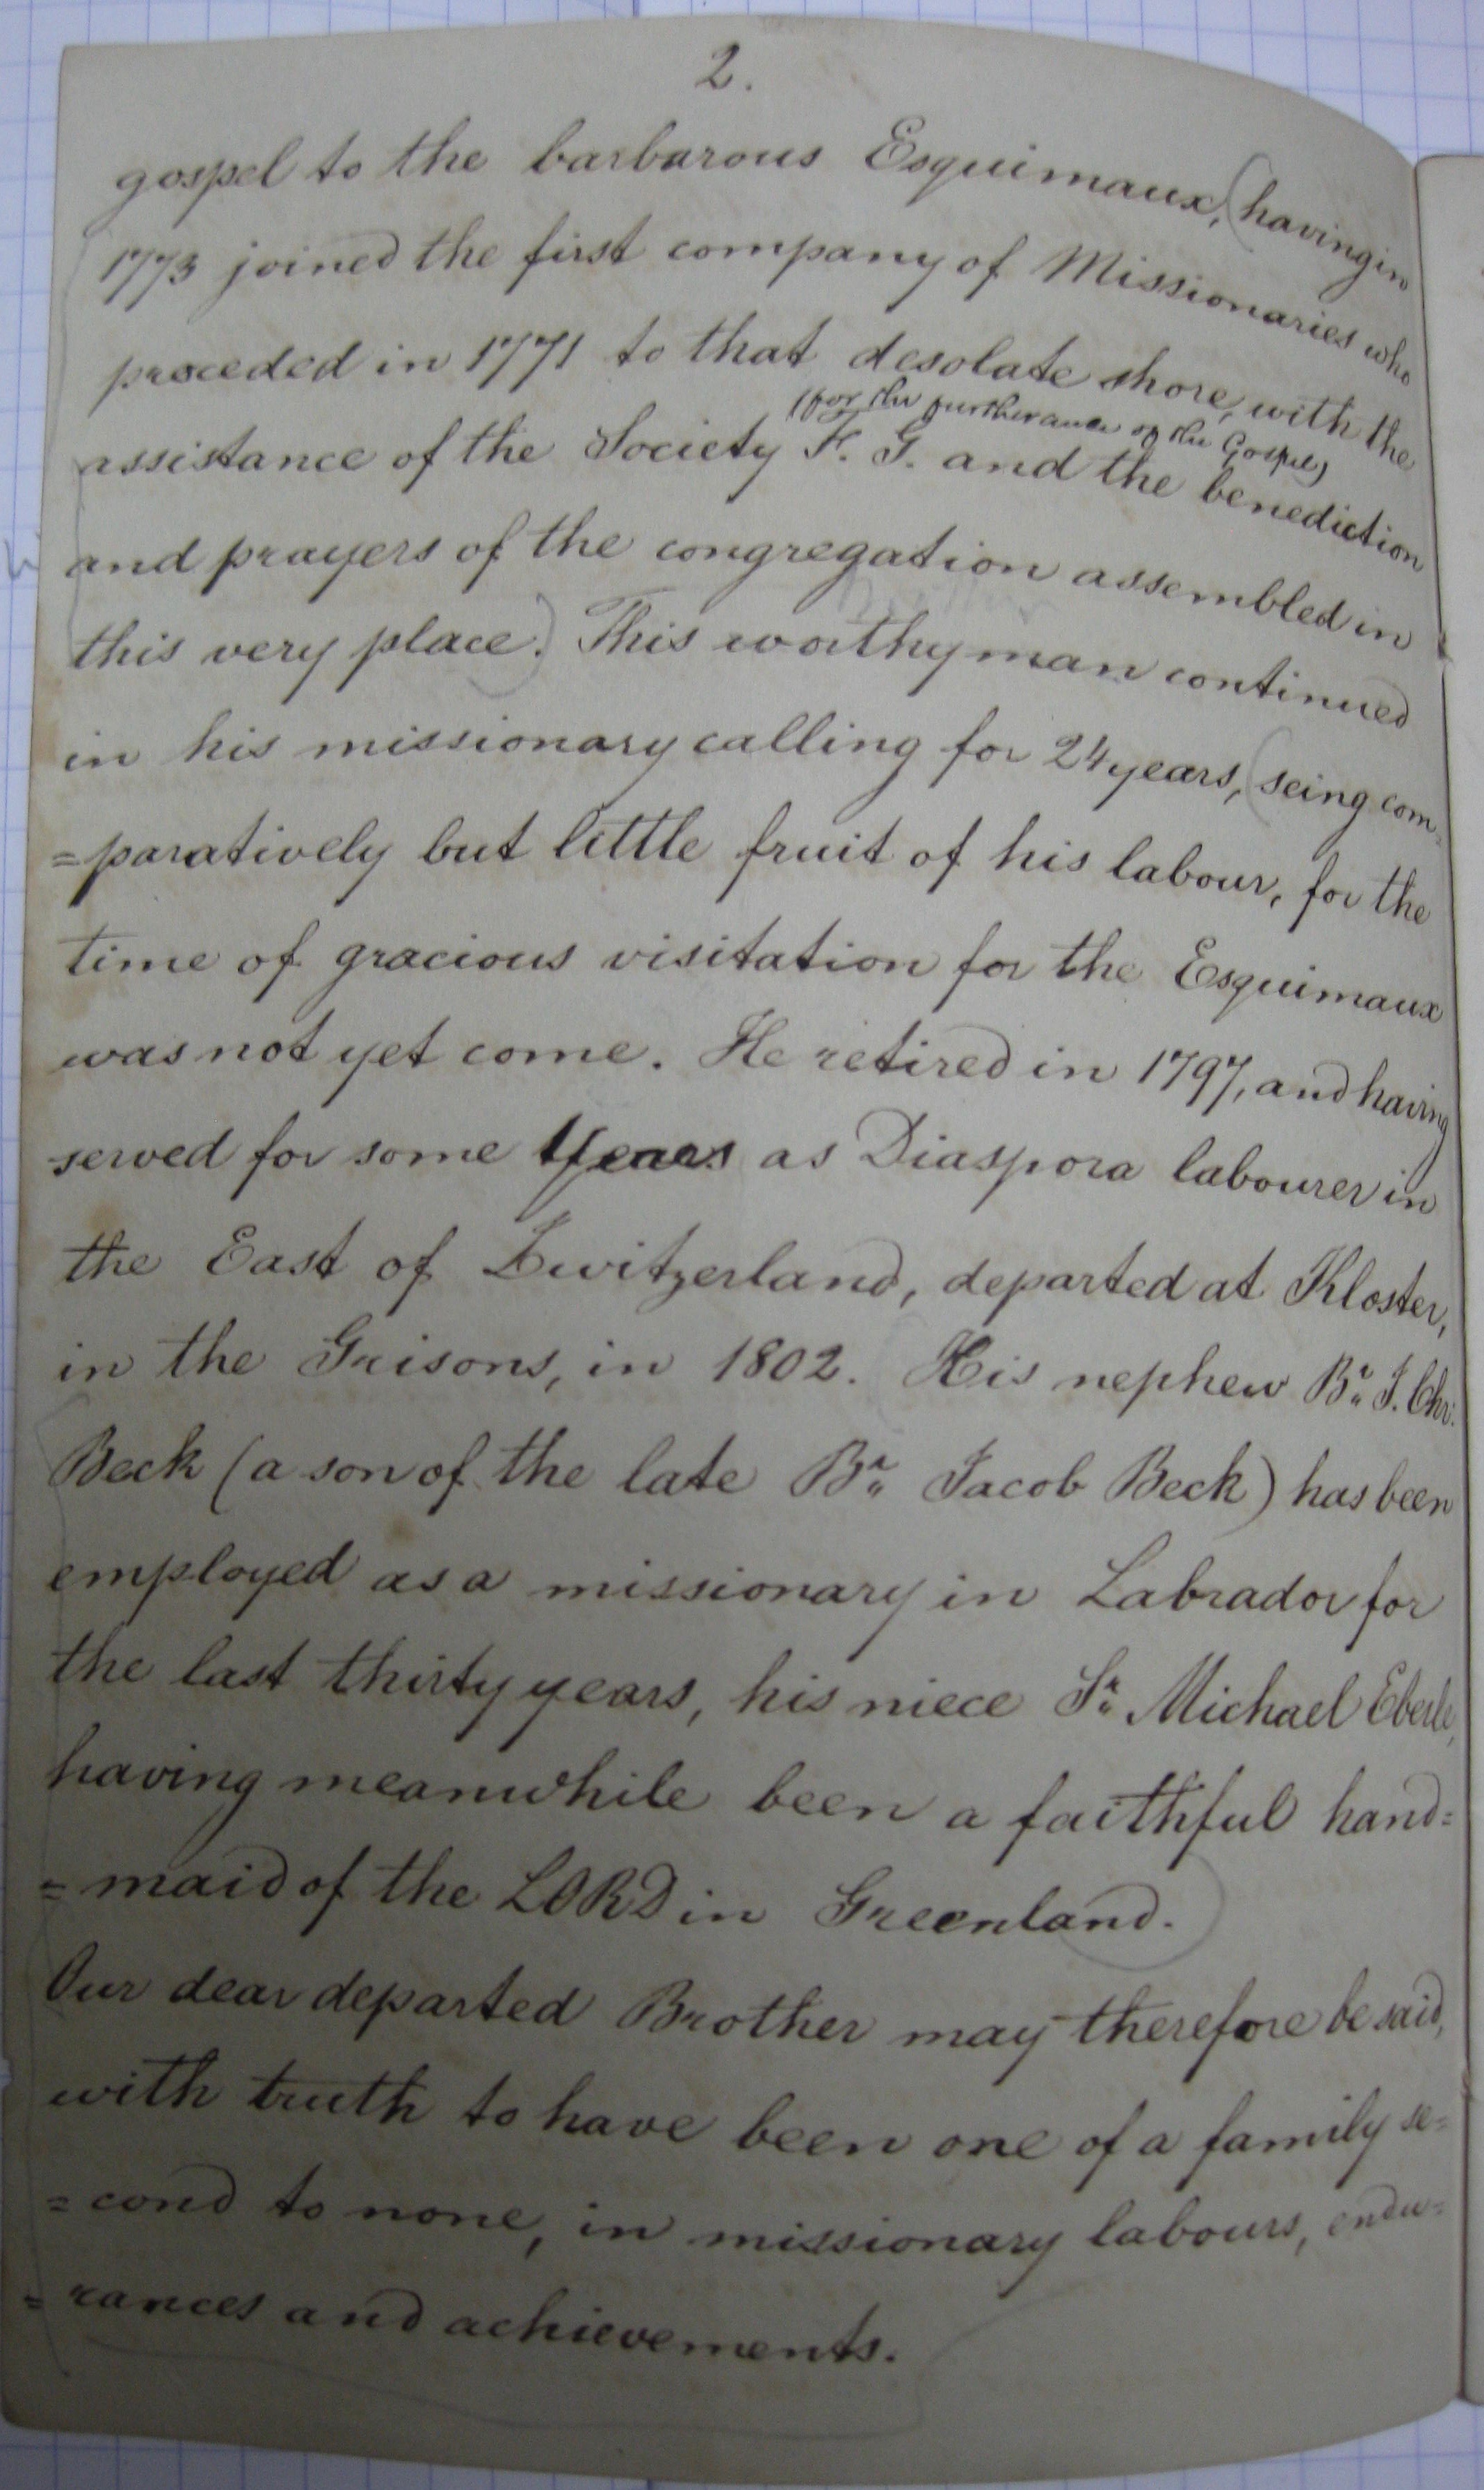 2.
gospel to the barbarous Esquimaux, (having in
1773 joined the first company of Missionaries who
proceded in 1771 to that desolate shore, with the
(for the furtherance of the Gospel)
assistance of the Society F. G. and the benediction
and prayers of the congregation assembled in
this very place.) This worthy man continued
in his missionary calling for 24 years, (seing com-
=paratively but little fruit of his labour, for the
time of gracious visitation for the Esquimaux
was not yet come. He retired in 1797, and having
served for some Years as Diaspora labourer in
the East of Switzerland, departed at Kloster,
in the Grisons, in 1802. His nephew Br. J. Chr.
Beck (a son of the late Br. Jacob Beck) has been
employed as a missionary in Labrador for
the last thirty years, his niece Sr. Michael Eberle,
having meanwhile been a faithful hand=
=maid of the LORD in Greenland.)
Our dear departed Brother may therefore be said,
with truth to have been one of a family se=
=cond to none, in missionary labours, endu=
=rances and achievements.